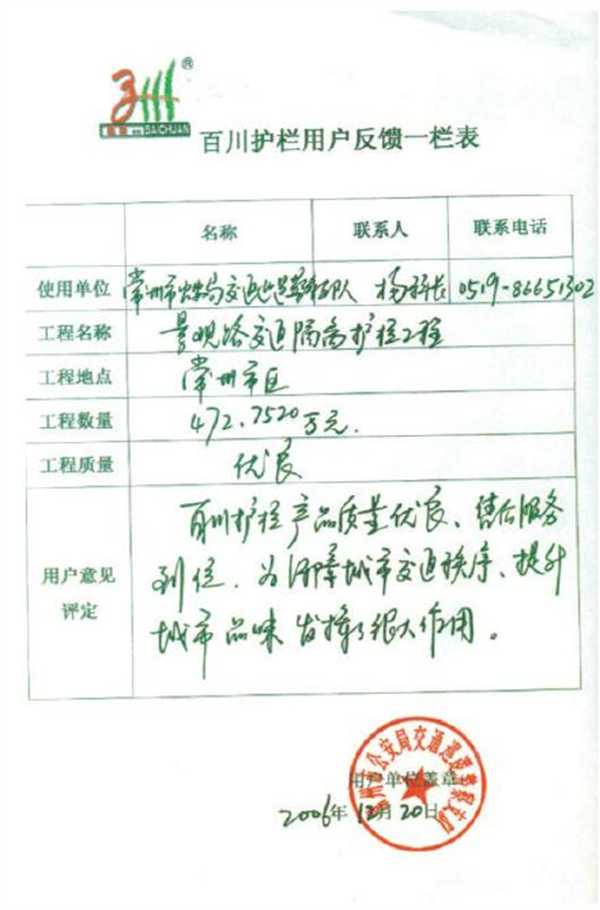 ®
BAICHUAN
百川护栏用户反馈一栏表
名称 联系人 联系电话
使用单位 常州市公安局交通巡逻警察支队 杨科长 0519-86651302
工程名称 景观路交通隔离护栏工程
工程地点 常州市区
工程数量 472.7520万元.
工程质量 优良
用户意见
评定
百川护栏产品质量优良、售后服务
到位,为保障城市交通秩序、提升
城市品味发挥了很大作用。
常州市公安局交通巡逻警察支队
用户单位盖章
2006年12月20日